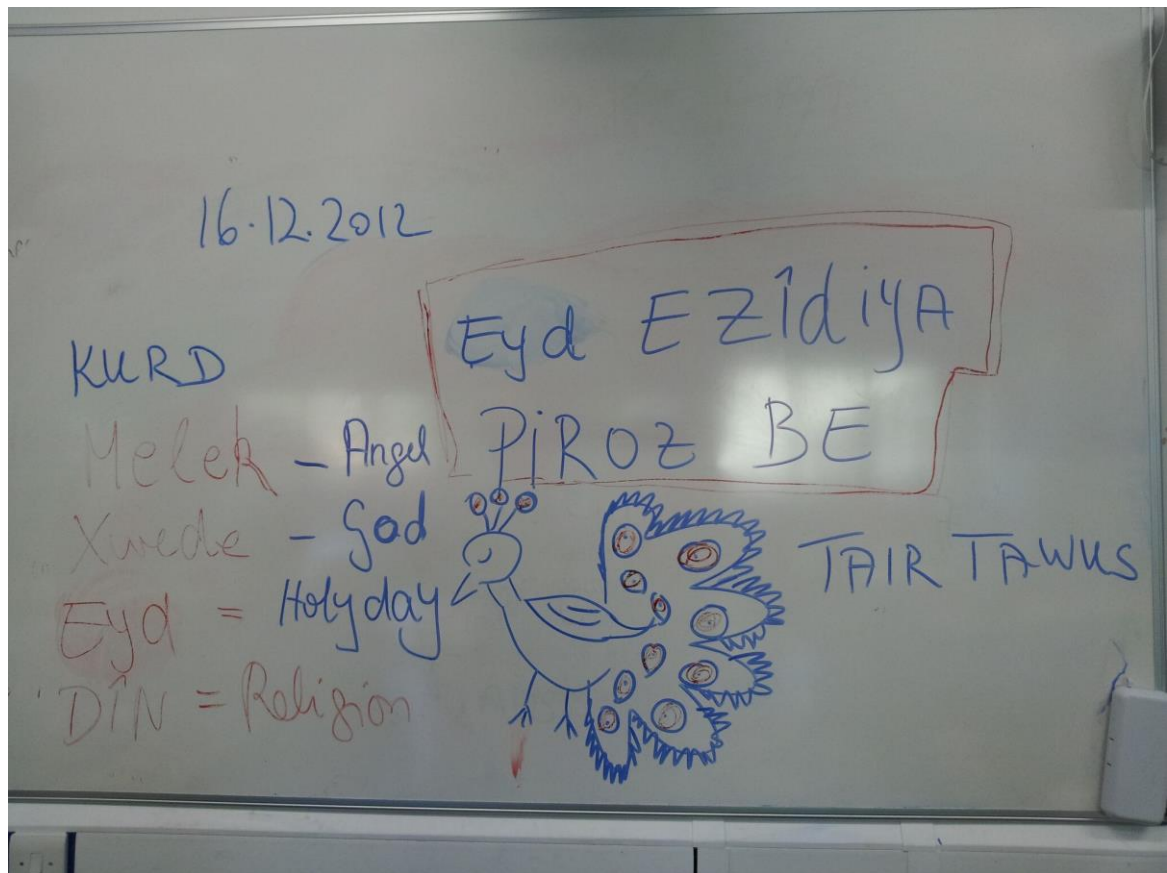 16.12.2012
Eyd EZîdiyA
PiROZ BE
KURD
Melek - Angel
Xwede - God
Eyd = Holyday
DÎN = Religion
TAIR TAWUS